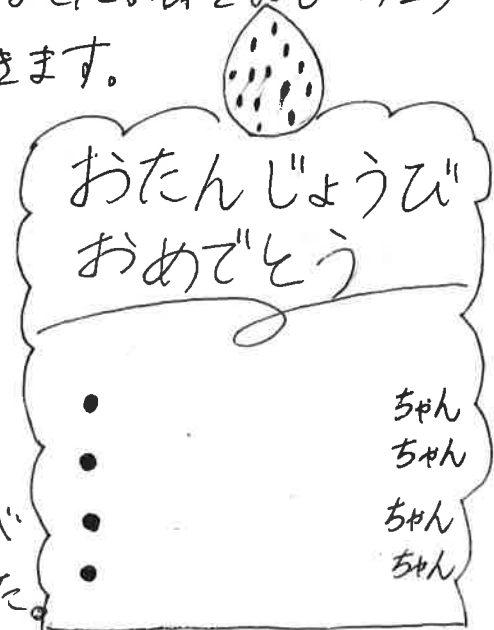 きます。
おたんじょうび
おめでとう
● ちゃん
● ちゃん
● ちゃん
● ちゃん
が
た。